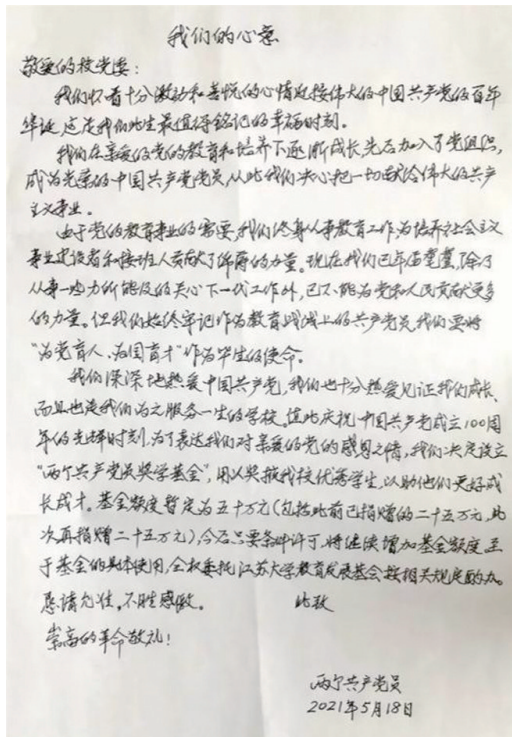 我们的心意
敬爱的校党委：
我们怀着十分激动和喜悦的心情迎接伟大的中国共产党的百年
华诞,这是我们此生最值得铭记的幸福时刻.
我们在亲爱的党的教育和培养下逐渐成长,先后加入了党组织,
成为光荣的中国共产党党员,从此我们决心把一切献给伟大的共产
主义事业.
由于党的教育事业的需要,我们终身从事教育工作,为培养社会主义
事业建设者和接班人贡献了绵薄的力量.现在我们已年届耄耋,除了
从事一些力所能及的关心下一代工作外,已不能为党和人民贡献更多
的力量.但我们始终牢记作为教育战线上的共产党员,我们要将
“为党育人、为国育才”作为毕生的使命.
我们深深地热爱中国共产党,我们也十分热爱见证我们成长、
而且也是我们为之服务一生的学校.值此庆祝中国共产党成立100周
年的光辉时刻,为了表达我们对亲爱的党的感恩之情,我们决定设立
“两个共产党员奖学基金”,用以奖掖我校优秀学生,以助他们更好成
长成才.基金额度暂定为五十万元(包括此前已捐赠的二十五万元,此
次再捐赠二十五万元),今后只要条件许可,将继续增加基金额度.至
于基金的具体使用,全权委托江苏大学教育发展基会按相关规定酌办.
恳请允准.不胜感激. 此致
崇高的革命敬礼!
两个共产党员
2021年5月18日